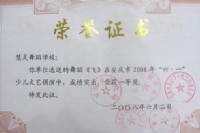 荣誉证书
舞蹈学校：
你单位选送的舞蹈《飞》在安庆市2008年“六·一”
少儿文艺调演中，成绩突出，荣获一等奖。
特发此证。
二〇〇八年六月二日